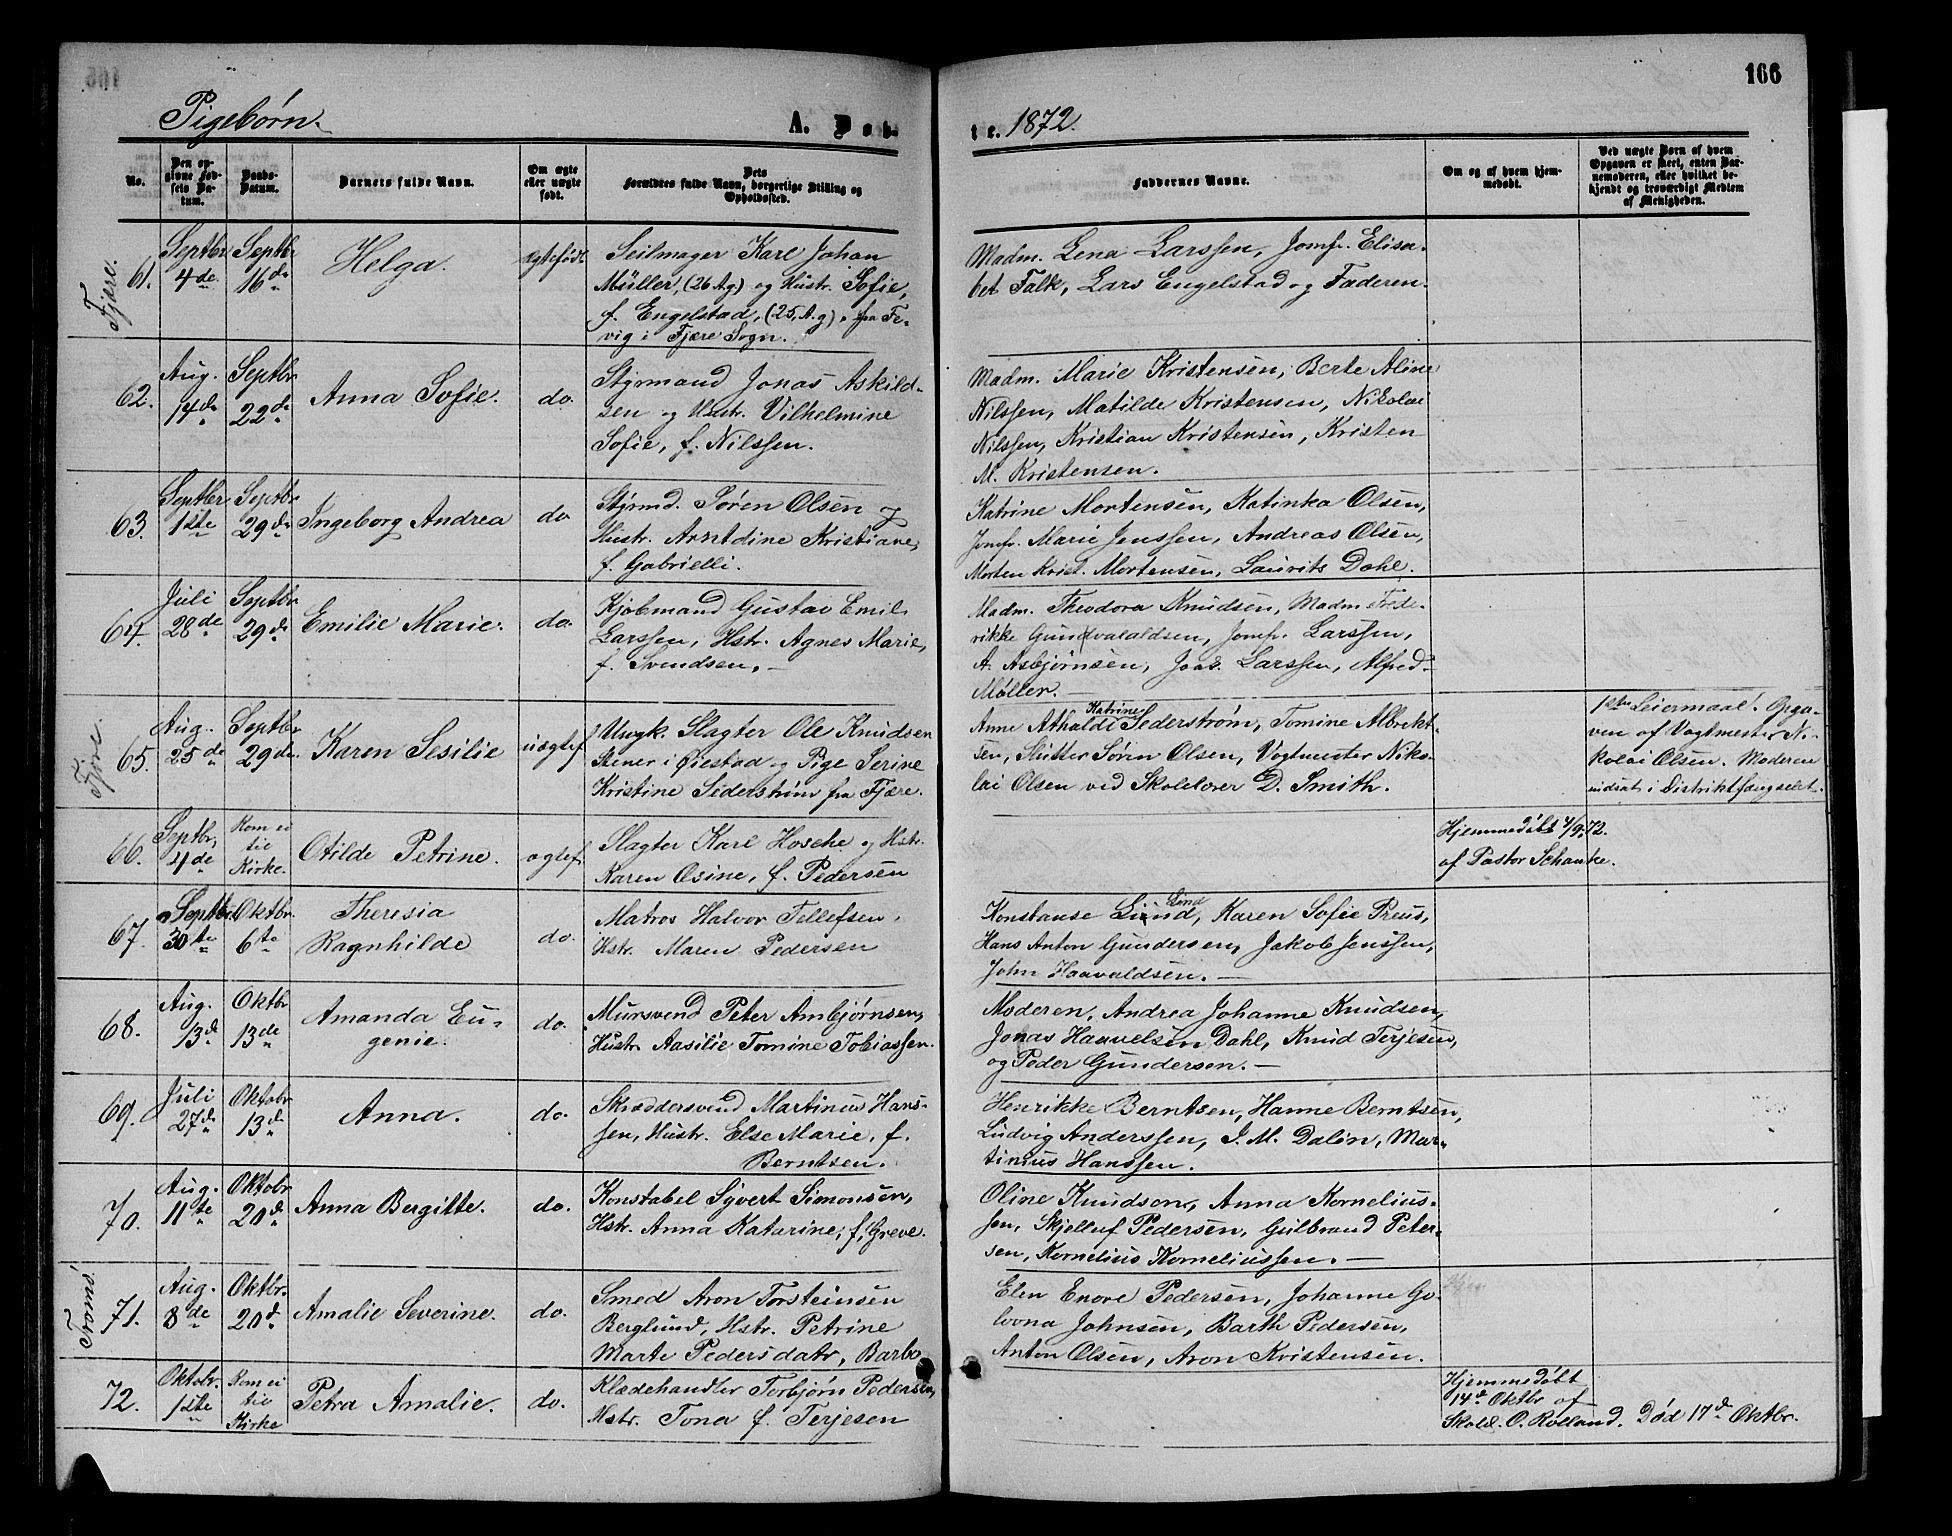 166
Pigebørn.
A. Døb-
te. 1872.
No.
Den op-
givne Fød-
sels Da-
tum.
Daabs-
Datum.
Barnets fulde Navn.
Om ægte
eller uægte
født.
Dets
Forældres fulde Navn, borgerlige Stilling og
Opholdssted.
Faddernes Navne.
Om og af hvem hjem-
medøbt.
Ved uægte Børn af hvem
Opgaven er skeet, enten Bar-
nemoderen, eller hvilket be-
kjendt og troværdigt Medlem
af Menigheden.
Fjære.
61.
Septbr
4de
Septbr
16de
Helga.
ægtefødt
Seilmager Karl Johan
Müller, (26 A.g) og Hustr. Sofie,
f. Engelstad, (25, A.g), fra Fe-
vig i Fjære Sogn.
Madm. Lena Larssen, Jomfr. Elisa-
bet Falk, Lars Engelstad og Faderen.
62.
Aug.
14de
Septbr
22de
Anna Sofie.
do.
Styrmand Jonas Askild-
sen og Hustr. Vilhelmine
Sofie, f. Nilssen.
Madm. Marie Kristensen, Berte Aline
Nilssen, Matilde Kristensen, Nikolai
Nilssen, Kristian Kristensen, Kristen
M. Kristensen.
63.
Septbr
1ste
Septbr
29de
Ingeborg Andrea
do
Styrmd. Søren Olsen og
Hustr. Arntdine Kristiane,
f. Gabrielli.
Katrine Mortensen, Katinka Olsen,
Jomfr. Marie Jenssen, Andreas Olsen,
Morten Krist. Mortensen, Laurits Dahl.
64.
Juli
28de
Septbr
29de
Emilie Marie.
do.
Kjøbmand Gustav Emil
Larssen, Hstr. Agnes Marie,
f. Svendsen. —
Madm. Theodora Knudsen, Madm Frede-
rikke Gundvaldsen, Jomfr. Larssen,
A. Asbjørnsen, Joas. Larssen, Alfred
Møller. —
Fjære.
65.
Aug.
25de
Septbr
29de
Karen Sesilie
uægtef
Ungk. Slagter Ole Knudsen
Stener i Øiestad og Pige Serine
Kristine Sederstrøm fra Fjære.
Katrine
Anne Athaldi Sederstrøm, Tomine Albrekt-
sen, Slutter Søren Olsen, Vogtmester Niko-
lai Olsen ved Skolelærer D. Smith.
1ste Leiermaal. Opga-
ven af Vogtmester Ni-
kolai Olsen. Moderen
indsat i Distriktsfængselet.
66.
Septbr.
4de
Kom ei
til
Kirke.
Otilde Petrine.
ægtef
Slagter Karl Hosche og Hstr.
Karen Osine, f. Pedersen
Hjemmedøbt 4/9.72.
af Pastor Schanke.
67.
Septbr.
30te
Oktbr.
6te
Theresia
Ragnhilde
do.
Matros Halvor Tellefsen,
Hstr. Maren Pedersen
Lind
Konstanse Lind, Karen Sofie Preus,
Hans Anton Gundersen, Jakob Jenssen,
John Haavaldsen. —
68.
Aug.
13de
Oktbr
13de
Amanda Eu-
genie.
do.
Mursvend Peter Ambjørnsen,
Hustr. Aasilie Tomine Tobiassen.
Moderen, Andrea Johanne Knudsen,
Jonas Haavelsen Dahl, Knud Terjesen,
og Peder Gundersen. —
69.
Juli
27de
Oktobr
13de
Anna.
do.
Skræddersvend Martinus Hans-
sen, Hustr. Else Marie, f.
Berntsen.
Henrikke Berntsen, Hanne Berntsen,
Ludvig Anderssen, J. M. Dalin, Mar-
tinius Hanssen.
70.
Aug.
11te
Oktobr
20de
Anna Bergitte.
do.
Konstabel Syvert Simonsen,
Hstr. Anna Katarine, f. Greve.
Oline Knudsen, Anna Kornelius-
sen, Skjelluf Pedersen, Gulbrand Peter-
sen, Kornelius Korneliussen. —
Tromø.
71.
Aug.
8de
Oktbr.
20de
Amalie Severine.
do.
Smed Aron Torsteinsen
Berglund, Hstr. Petrine
Marte Pedersdatr, Barbo
Elen Enore Pedersen, Johanne Go-
lvona Johnsen, Barth Pedersen,
Anton Olsen, Aron Kristensen.
72.
Oktobr.
1ste
Kom ei
til
Kirke
Petra Amalie.
do.
Klædehandler Torbjørn Pedersen,
Hstr. Tona f. Terjesen
Hjemmedøbt
14de Oktbr af
Skolel. O. Rolland. Død 17de Oktbr.